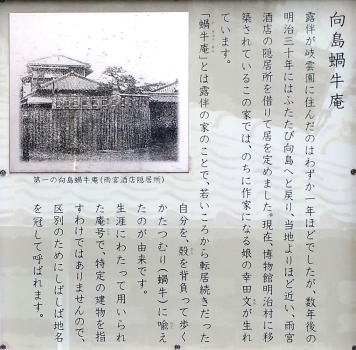 向島蝸牛庵
露伴が岐雲園に住んだのはわずか一年ほどでしたが、数年後の
明治三十年にはふたたび向島へと戻り、当地よりほど近い、雨宮
酒店の隠居所を借りて居を定めました。現在、博物館明治村に移
築されているこの家では、のちに作家になる娘の幸田文が生れ
ています。
「蝸牛庵」とは露伴の家のことで、若いころから転居続きだった
自分を、殻を背負って歩く
かたつむり(蝸牛)に喩え
たのが由来です。
生涯にわたって用いられ
た庵号で、特定の建物を指
すわけではありませんので、
区別のためにしばしば地名
を冠して呼ばれます。
第一の向島蝸牛庵(雨宮酒店隠居所)